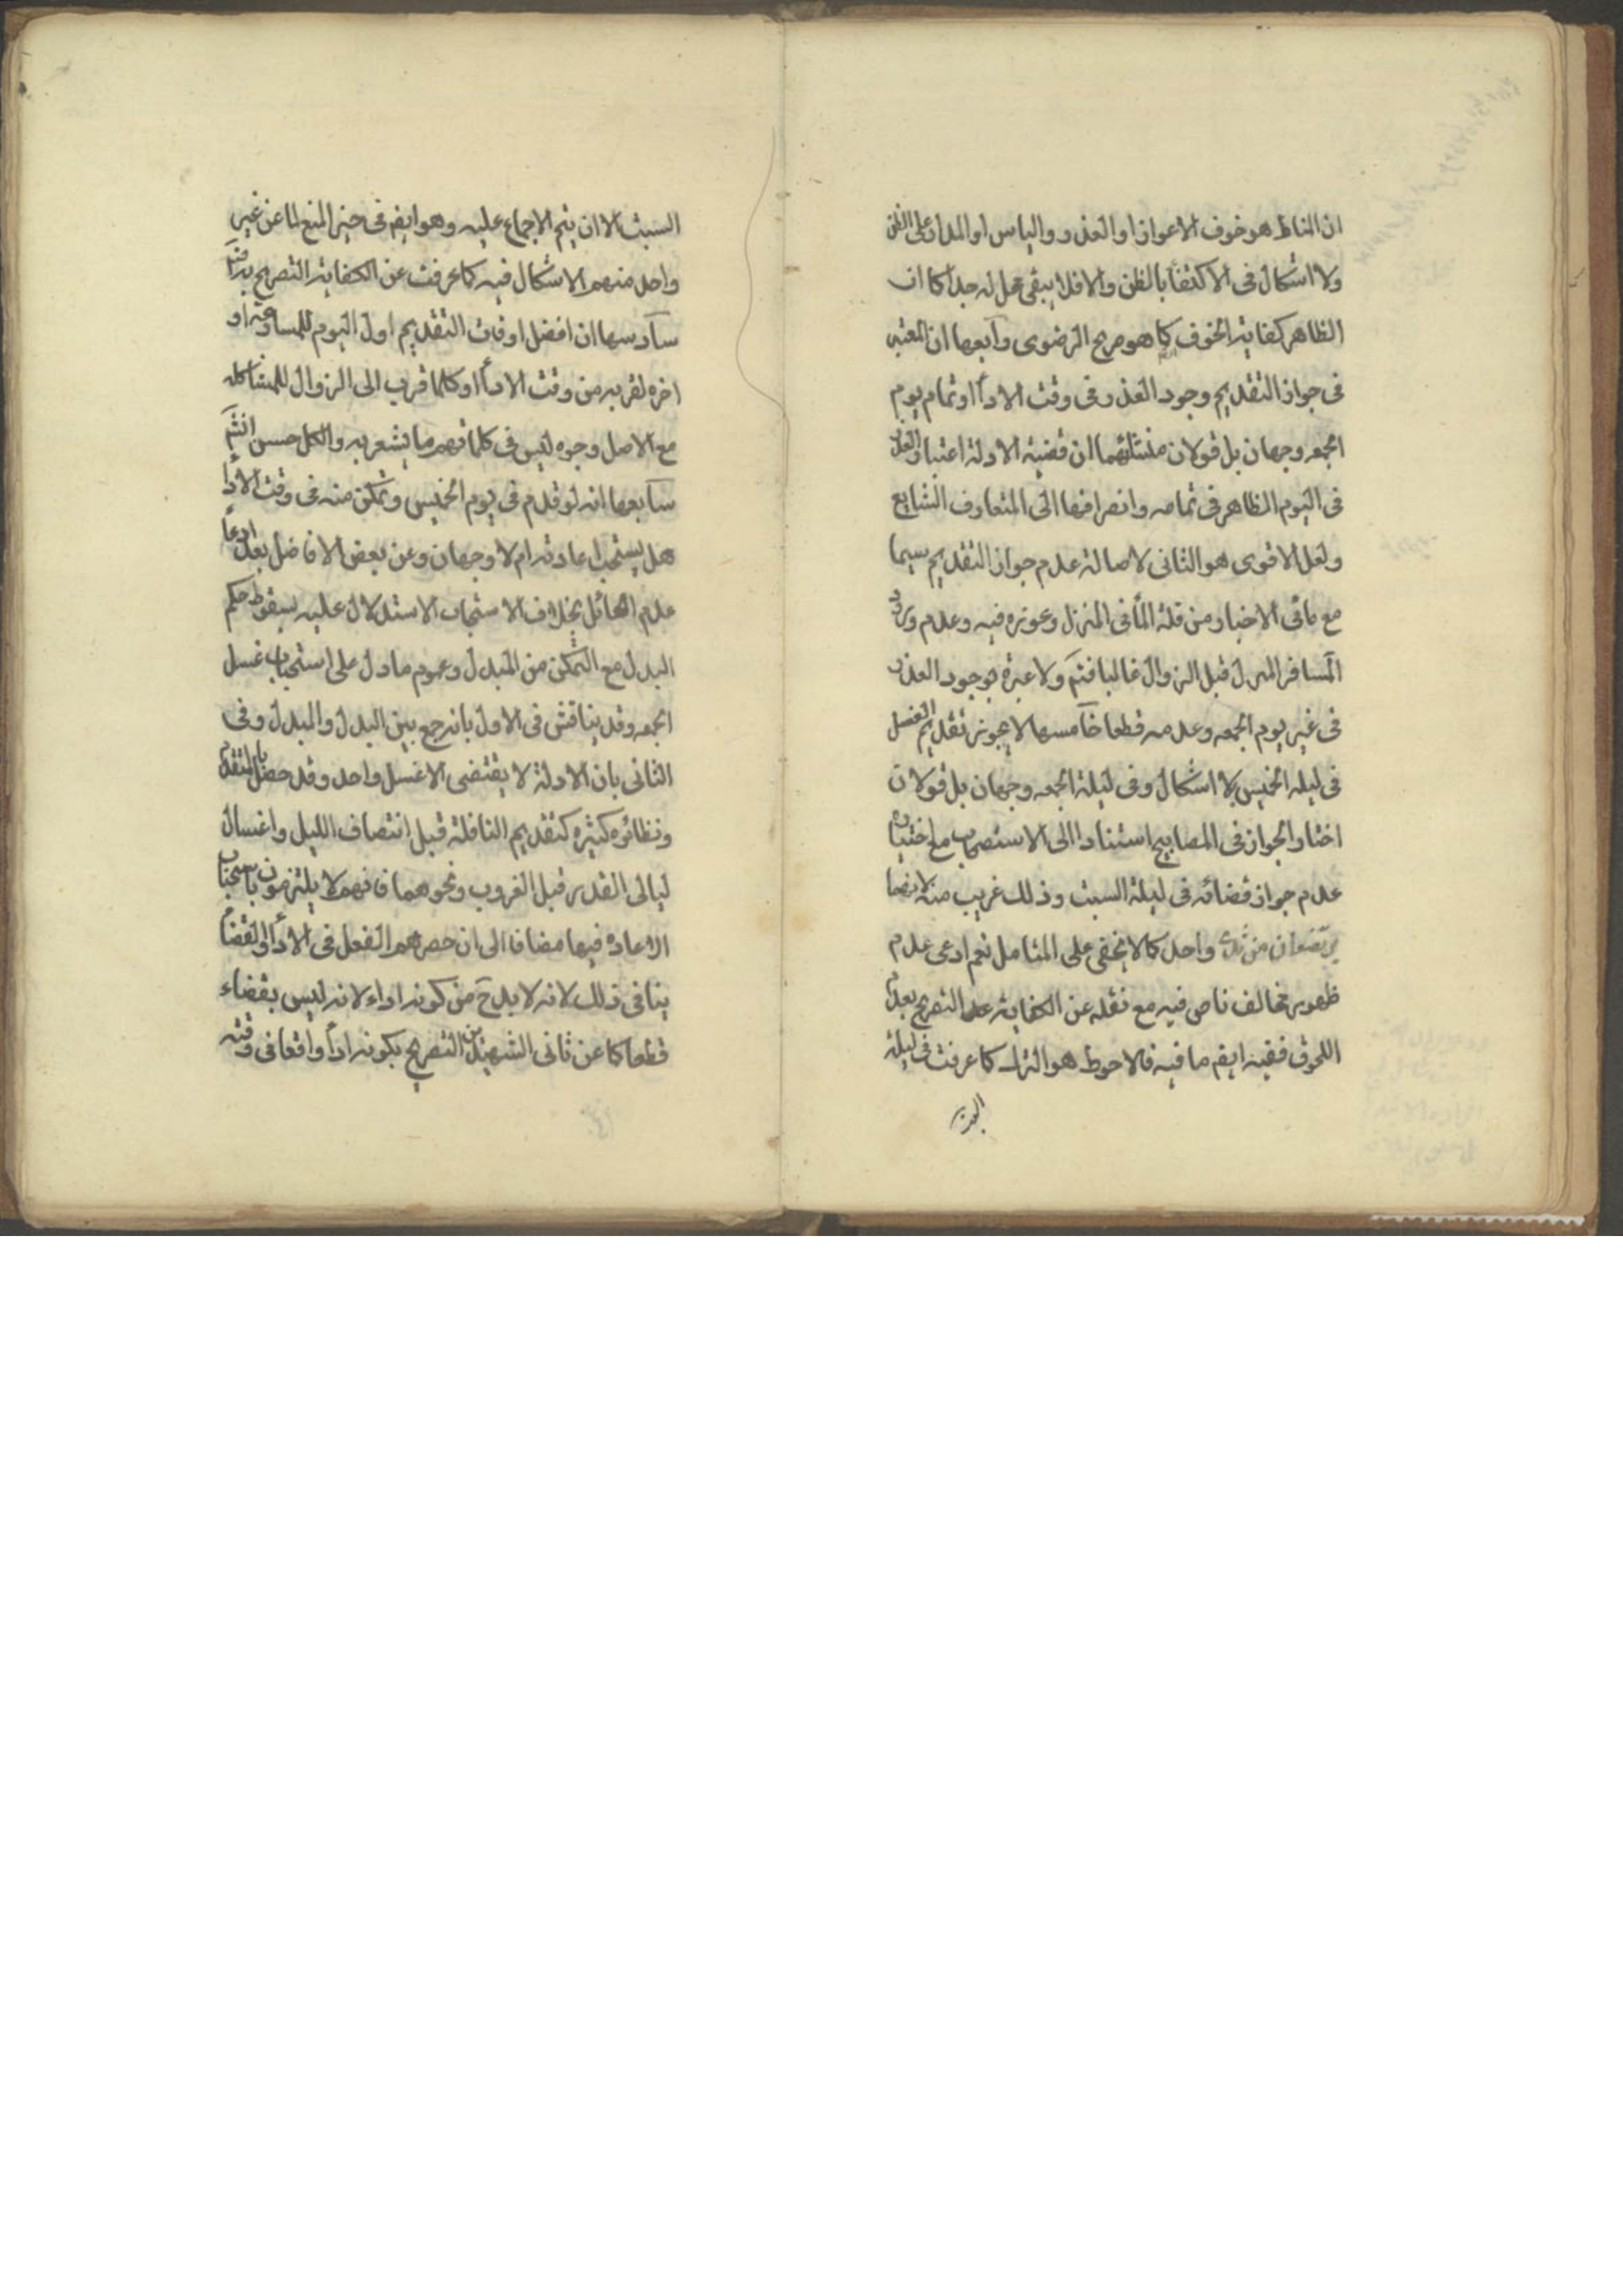 ان المناط هو خوف الاعواز او التعذر و الياس او المدار على الظن
ولا اشكال فى الاكتفا بالظن والا فلا يبقى محل له جدا كما ان
الظاهر كفاية الخوف كما هو صريح الرضوى رابعها ان المعتبر
فى جواز التقديم وجود العذر فى وقت الادآ او تمام يوم
الجمعه وجهان بل قولان منشائهما ان قضية الادلة اعتبار العذر
فى اليوم الظاهر فى تمامه وانصرافها الى المتعارف الشايع
ولعل الاقوى هو الثانى لاصالة عدم جواز التقديم سيما
مع ما فى الاخبار من قلة الما فى المنزل وعوزه فيه وعدم ورود
المسافر المنزل قبل الزوال غالبا فتم ولا عبرة بوجود العذر
فى غير يوم الجمعه وعدمه قطعا خامسها لا يجوز تقديم الغسل
فى ليله الخميس بلا اشكال وفى ليلة الجمعه وجهان بل قولان
اختار الجواز فى المصابيح استنادا الى الاستصحاب مع اختياره
عدم جواز قضائه فى ليلة السبت وذلك غريب منه لانهما
يرتضعان من ثدى واحد كما لا يخفى على المتامل نعم ادعى عدم
ظهور مخالف ناص فيه مع نقله عن الكفاية عدم التصريح بعدم
اللحوق ففيه ايضم ما فيه فالاحوط هو الترك كما عرفت فى ليلة
السبت
السبت الا ان يتم الاجماع عليه وهو ايضم فى حيز المنع لما عن غير
واحد منهم الاشكال فيه كما عرفت عن الكفاية التصريح به فتم
سادسها ان افضل اوقات التقديم اول اليوم للمسارعة او
اخره لقربه من وقت الادآ او كلما قرب الى الزوال للمشاكله
مع الاصل وجوه ليس فى كلماتهم ما يشعر به والكل حسن انشم
سابعها انه لو قدم فى يوم الخميس وتمكن منه فى وقت الادا
هل يستحب اعادته ام لا وجهان وعن بعض الافاضل بعد ادعا
عدم القائل بخلاف الاستحباب الاستدلال عليه بسقوط حكم
البدل مع التمكن من المبدل وعموم ما دل على استحباب غسل
الجمعه وقد يناقش فى الاول بانه جمع بين البدل والمبدل وفى
الثانى بان الادلة لا يقتضى الا غسل واحد وقد حصل بالمتقدم
ونظائره كثيره كتقديم النافلة قبل انتصاف الليل واغسال
ليالى القدر قبل الغروب ونحوهما فانهم لا يلتزمون باستحباب
الاعاده فيها مضافا الى ان حصرهم الفعل فى الادآ والقضآ
ينافى ذلك لانه لا بد ح من كونه اداء لانه ليس بقضاء
قطعا كما عن ثانى الشهيدين التصريح بكونه ادآ واقعا فى وقته